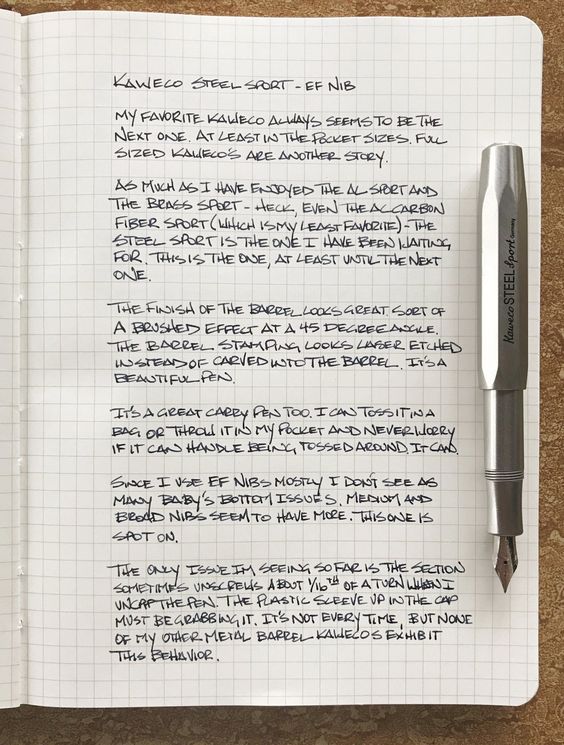 KAWECO STEEL SPORT - EF NIB
MY FAVORITE KAWECO ALWAYS SEEMS TO BE THE
NEXT ONE. AT LEAST IN THE POCKET SIZES. FULL
SIZED KAWECO'S ARE ANOTHER STORY.
AS MUCH AS I HAVE ENJOYED THE AL SPORT AND
THE BRASS SPORT - HECK, EVEN THE AL CARBON
FIBER SPORT (WHICH IS MY LEAST FAVORITE) - THE
STEEL SPORT IS THE ONE I HAVE BEEN WAITING
FOR. THIS IS THE ONE, AT LEAST UNTIL THE NEXT
ONE.
THE FINISH OF THE BARREL LOOKS GREAT. SORT OF
A BRUSHED EFFECT AT A 45 DEGREE ANGLE.
THE BARREL STAMPING LOOKS LASER ETCHED
INSTEAD OF CARVED INTO THE BARREL. IT'S A
BEAUTIFUL PEN.
IT'S A GREAT CARRY PEN TOO. I CAN TOSS IT IN A
BAG OR THROW IT IN MY POCKET AND NEVER WORRY
IF IT CAN HANDLE BEING TOSSED AROUND. IT CAN.
SINCE I USE EF NIBS MOSTLY I DON'T SEE AS
MANY BABY'S BOTTOM ISSUES. MEDIUM AND
BROAD NIBS SEEM TO HAVE MORE. THIS ONE IS
SPOT ON.
THE ONLY ISSUE I'M SEEING SO FAR IS THE SECTION
SOMETIMES UNSCREWS ABOUT 1/16TH OF A TURN WHEN I
UNCAP THE PEN. THE PLASTIC SLEEVE UP IN THE CAP
MUST BE GRABBING IT. IT'S NOT EVERY TIME, BUT NONE
OF MY OTHER METAL BARREL KAWECOS EXHIBIT
THIS BEHAVIOR.
Kaweco STEEL Sport Germany